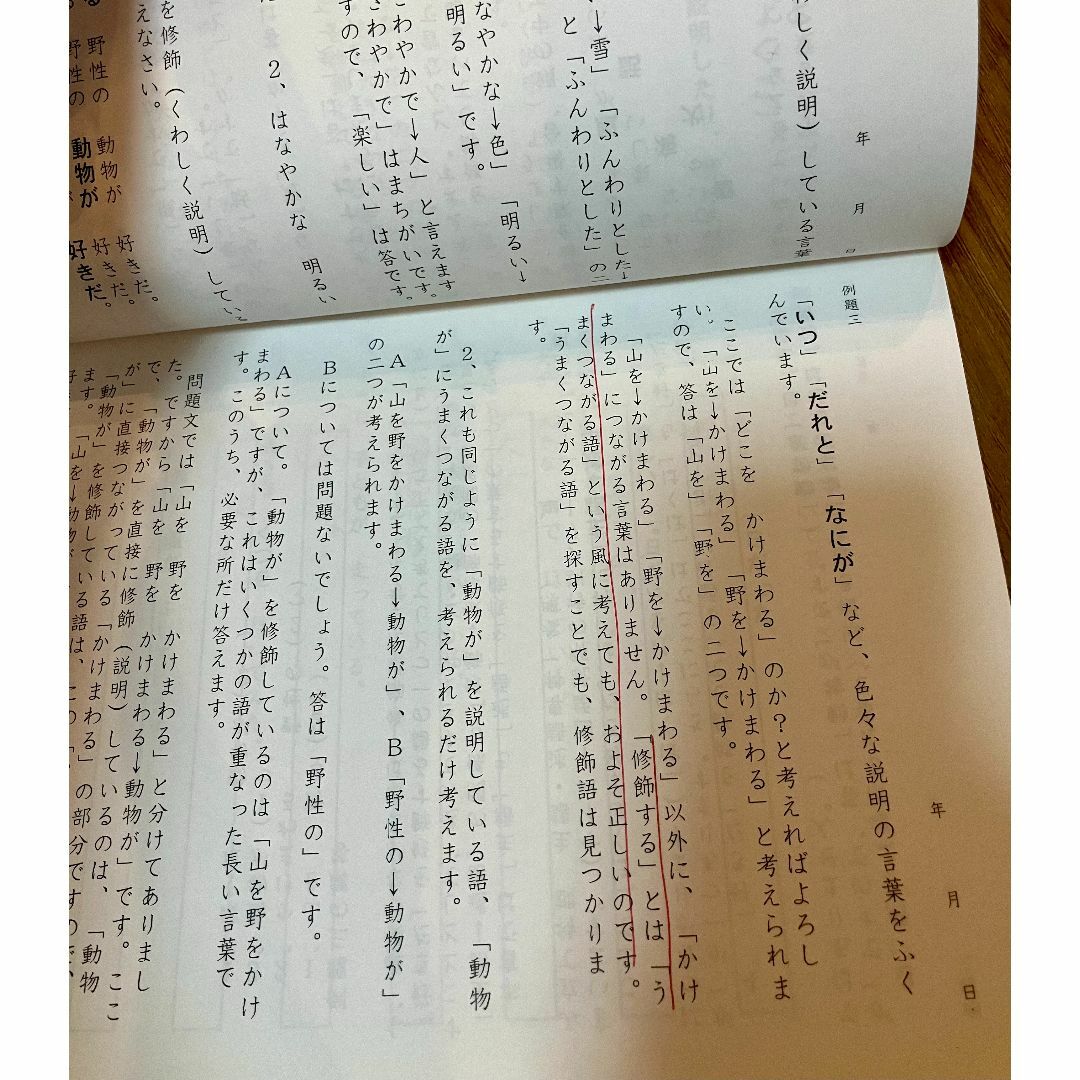 わしく説明）している言葉
年　月　日
→雪」「ふんわりとした→
と「ふんわりとした」の二
なやかな→色」「明るい→
明るい」です。
こわやかで→人」と言えます
さわやかで」はまちがいです。
すので、「楽しい」は答です。
2、はなやかな　明るい
を修飾（くわしく説明）してい
えなさい。
野性の　動物が　好きだ。
野性の　動物が　好きだ。
動物が　好きだ。
例題三
年　月　日
「いつ」「だれと」「なにが」など、色々な説明の言葉をふく
んでいます。
ここでは「どこを　かけまわる」のか？と考えればよろし
い。「山を→かけまわる」「野を→かけまわる」と考えられま
すので、答は「山を」「野を」の二つです。
「山を→かけまわる」「野を→かけまわる」以外に、「かけ
まわる」につながる言葉はありません。「修飾する」とは「う
まくつながる語」という風に考えても、およそ正しいのです。
「うまくつながる語」を探すことでも、修飾語は見つかりま
す。
2、これも同じように「動物が」を説明している語、「動物
が」にうまくつながる語を、考えられるだけ考えます。
A「山を野をかけまわる→動物が」、B「野性の→動物が」
の二つが考えられます。
Bについては問題ないでしょう。答は「野性の」です。
Aについて。「動物が」を修飾しているのは「山を野をかけ
まわる」ですが、これはいくつかの語が重なった長い言葉で
す。このうち、必要な所だけ答えます。
問題文では「山を　野を　かけまわる」と分けてありまし
た。ですから「山を　野を　かけまわる→動物が」です。ここ
で、「動物が」を直接に修飾（説明）しているのは、「動物
が」に直接つながっている「かけまわる」の部分ですので、
「動物が」を修飾している語は、この「
ます。「山を→動物が